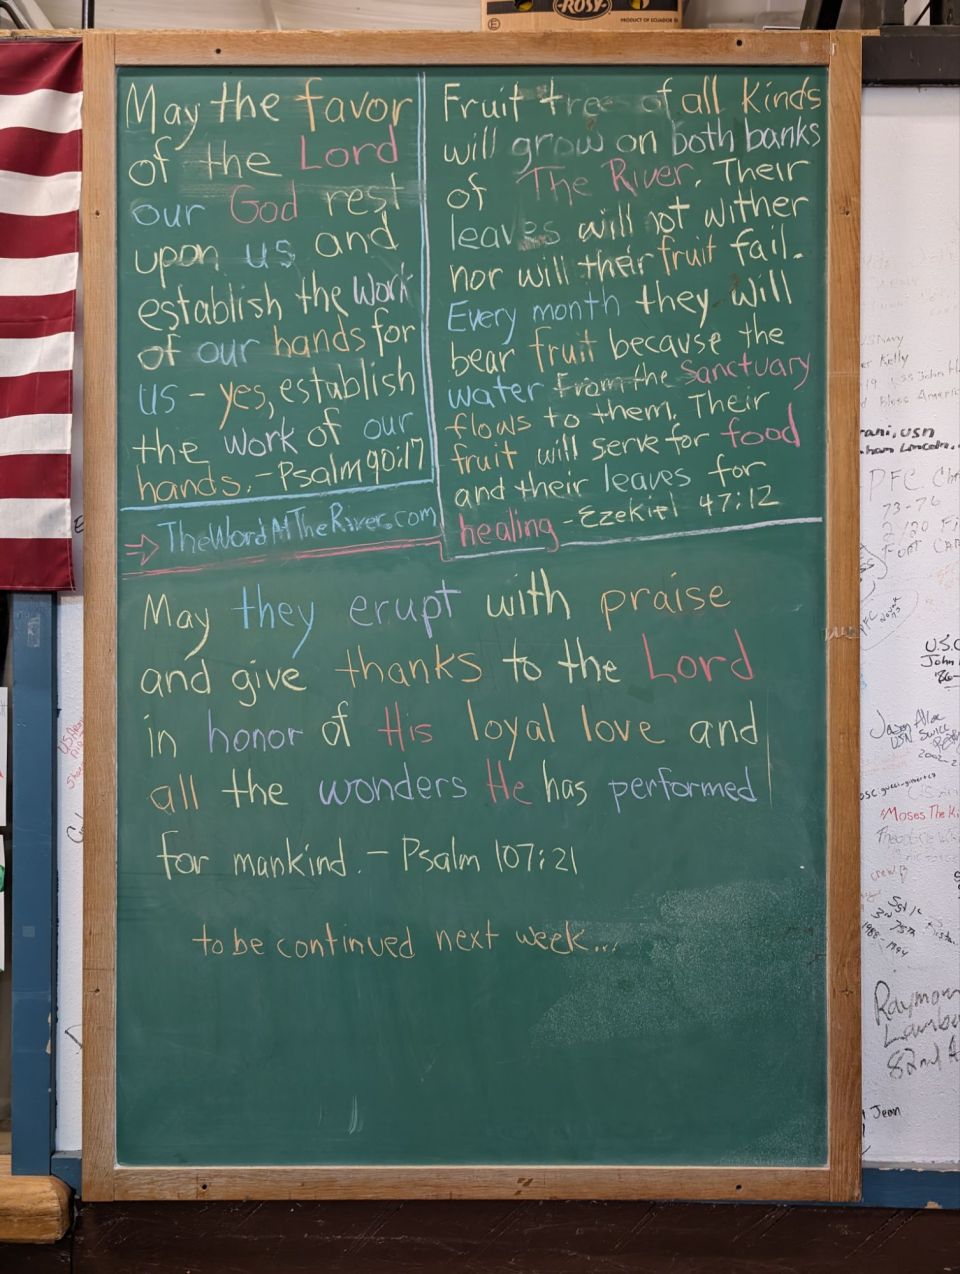 -ROSY-
PRODUCT OF ECUADOR
May the favor
of the Lord
our God rest
upon us and
establish the work
of our hands for
us - yes, establish
the work of our
hands. - Psalm 90:17
TheWordAtTheRiver.com
Fruit tree of all kinds
will grow on both banks
of The River. Their
leaves will not wither
nor will their fruit fail.
Every month they will
bear fruit because the
water from the Sanctuary
flows to them. Their
fruit will serve for food
and their leaves for
healing - Ezekiel 47:12
May they erupt with praise
and give thanks to the Lord
in honor of His loyal love and
all the wonders He has performed
for mankind. - Psalm 107:21
to be continued next week...
Kelly
USS John
Bless America
USN
ham Lincoln
PFC
73-76
U.S.
John
Jason
USN
2002-2
Moses The Ki
crew
1988 1994
Raymon
82nd A
Jean